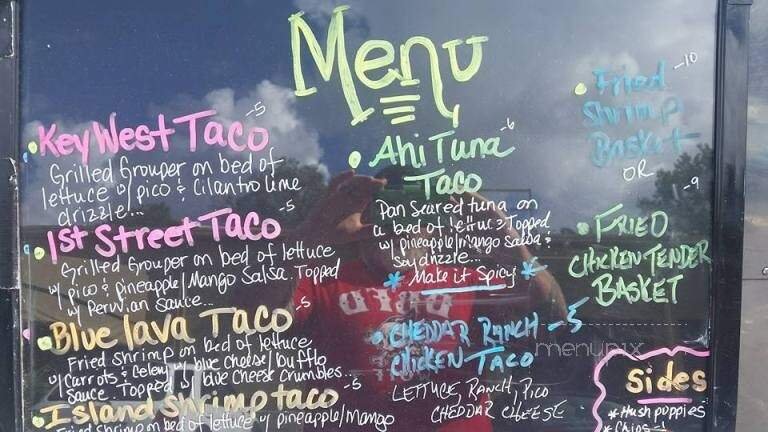 Menu
Key West Taco -5
Grilled Grouper on bed of
lettuce w/ pico & Cilantro lime
drizzle...
1st Street Taco -5
Grilled Grouper on bed of lettuce
w/ pico & pineapple/Mango Salsa. Topped
w/ Peruvian Sauce...
Blue lava Taco -5
Fried shrimp on bed of lettuce
w/ Carrots & Celery w/ blue cheese/bufflo
Sauce. Topped blue cheese crumbles...
Island shrimp taco -5
Fried shrimp on bed of lettuce w/ pineapple/mango
Ahi Tuna -6
Taco
Pan Seared tuna on
a bed of lettuce. Topped
w/ pineapple/mango Salsa &
Soy drizzle...
* Make it Spicy *
CHEDDAR RANCH -5
CHICKEN TACO
LETTUCE, RANCH, PICO
CHEDDAR CHEESE
Fried -10
Shrimp
Basket
OR
-9
FRIED
CHICKEN TENDER
BASKET
menupix
Sides
* Hush puppies
* Chips -1